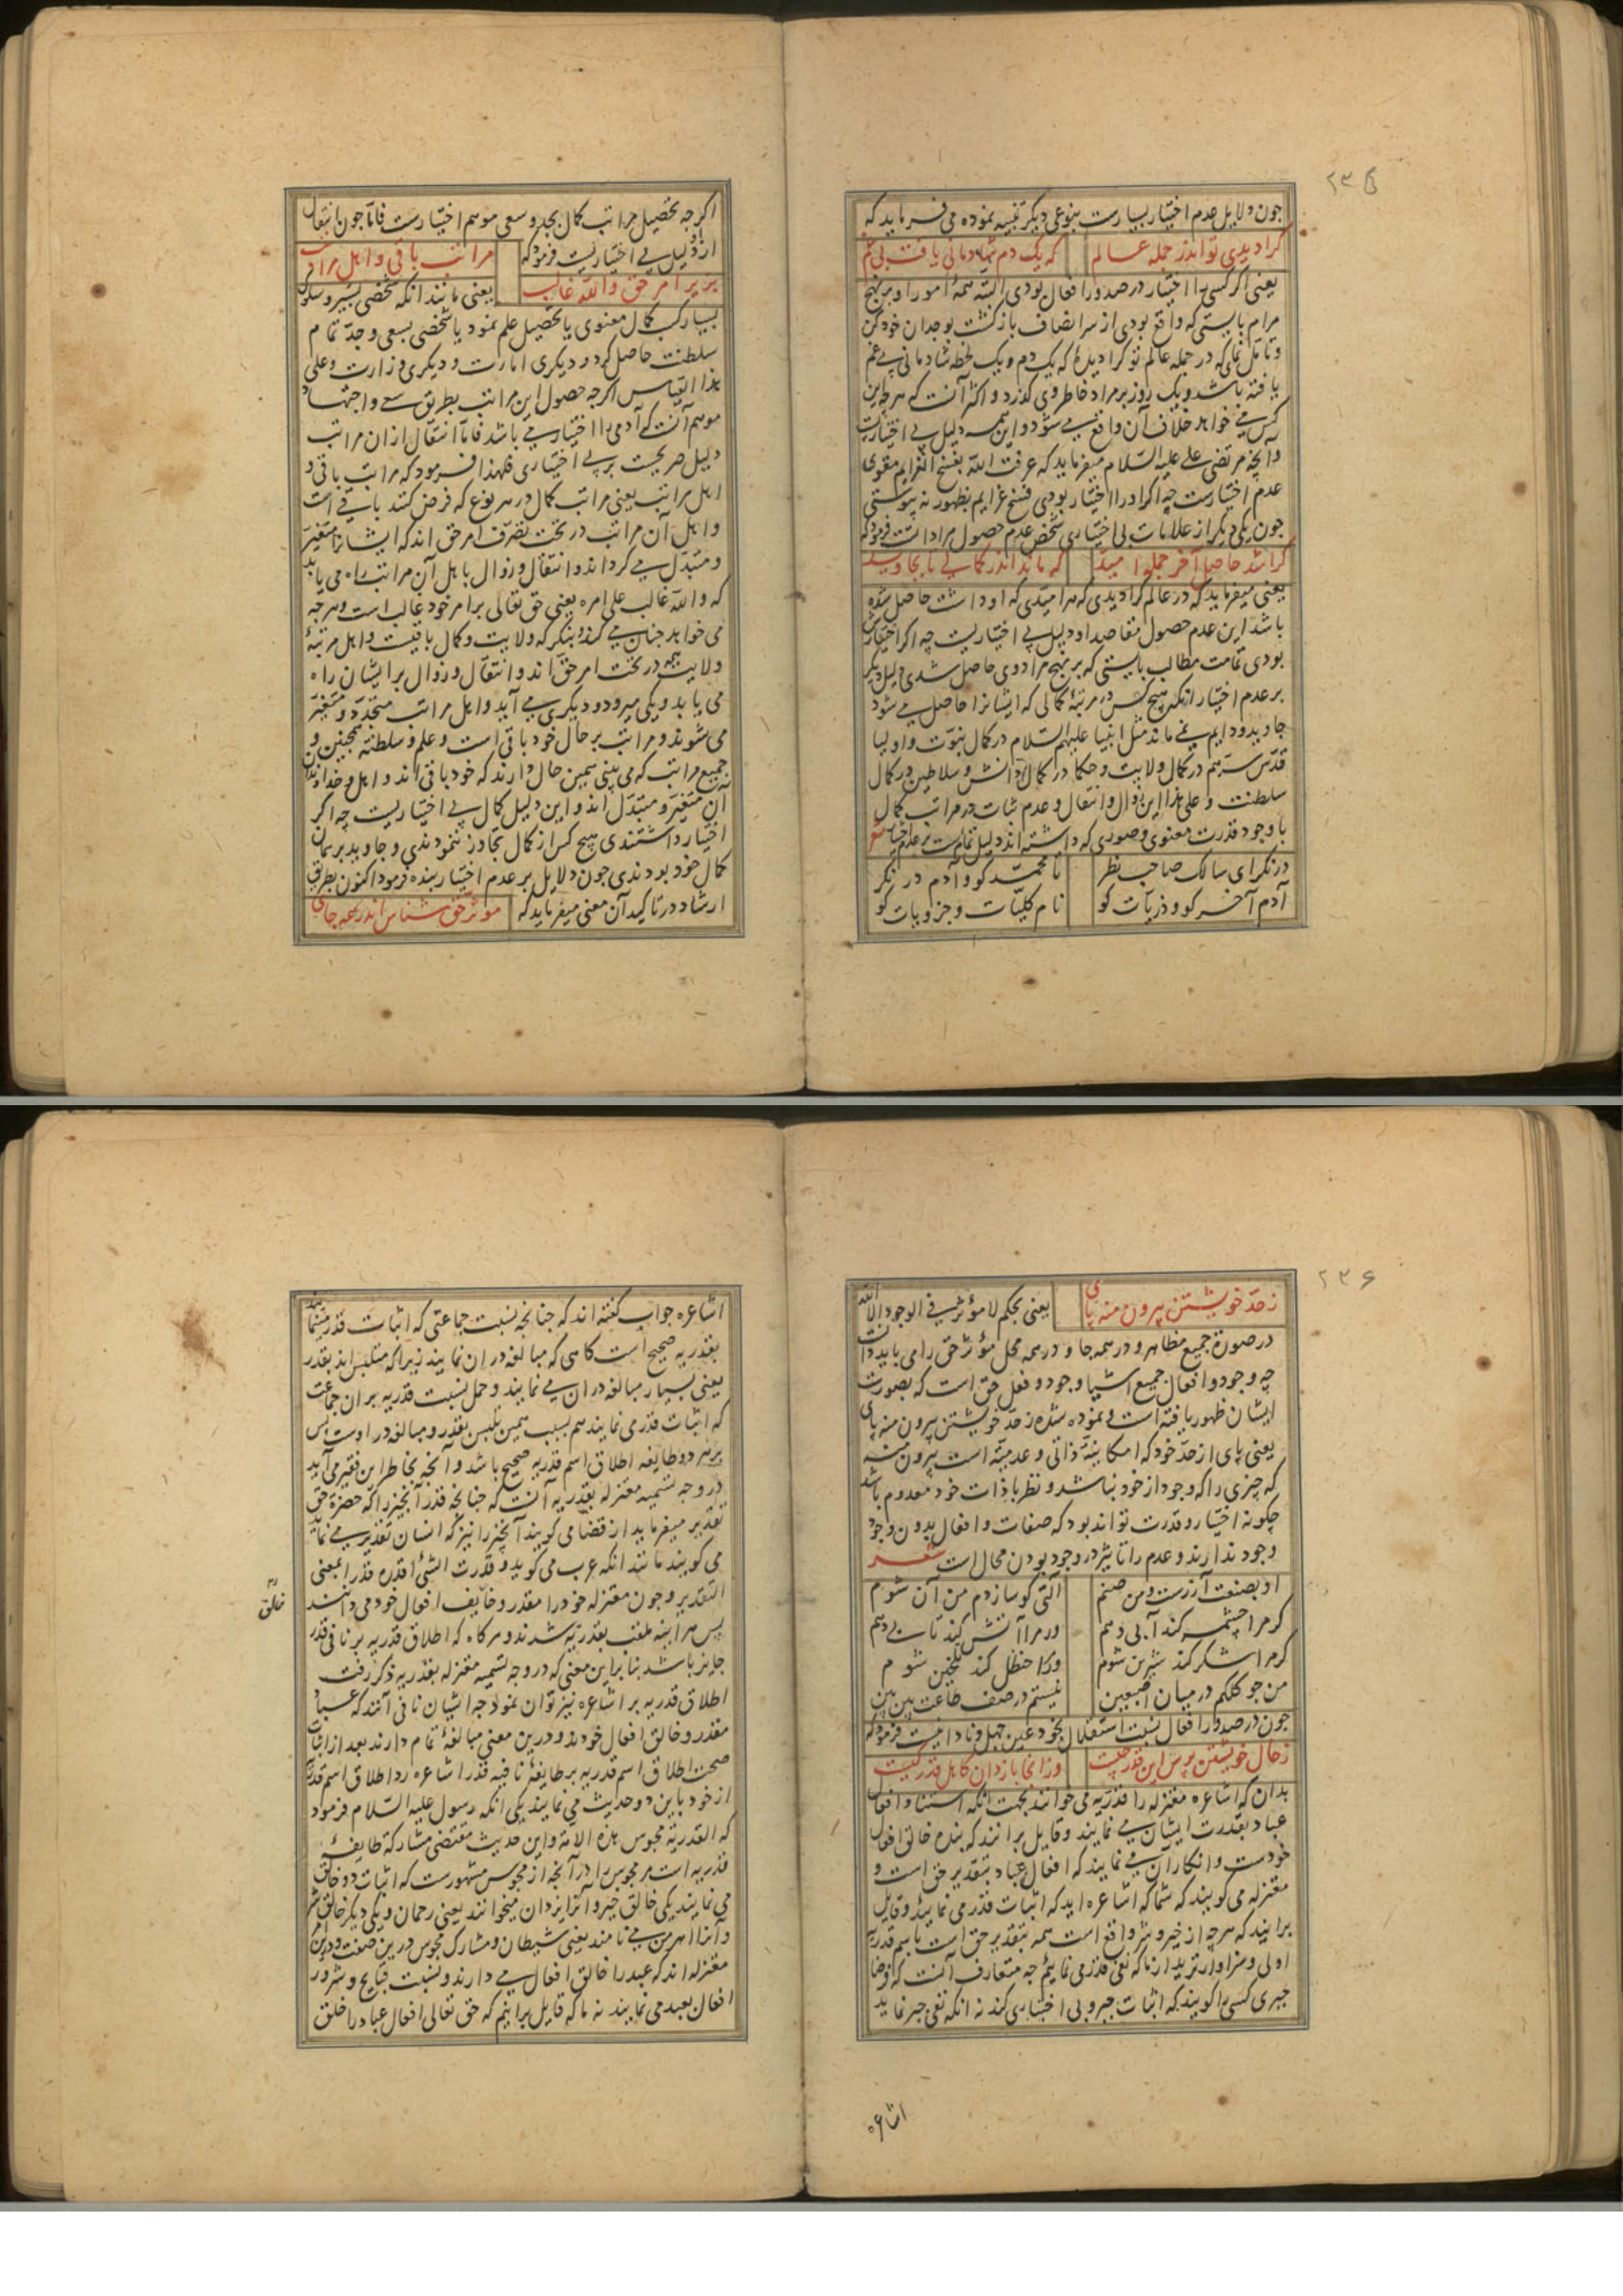 ۲۳۵
چون دلایل عدم اختیار بسیارست بنوعی دیگر تنبیه نموده می فرماید که
کرا دیدی تو اندر جمله عالم که یک دم شادمانی یافت بی غم
یعنی اگر کسی را اختیار در صدور افعال بودی البته همهٔ امور او بر نهج
مرام بایستی که واقع بودی از سر انصاف بازگشت بوجدان خود کن
و تامل نمای که در جمله عالم تو کرا دیدهٔ که یک دم و یک لحظه شادمانی بی غم
یافته باشد و یک روز بر مراد خاطر وی گذرد و اکثر آنست که هرچه این
کس می خواهد خلاف آن واقع می شود و این همه دلیل بی اختیاریست
و آنچه مرتضی علی علیه السلام میفرماید که عرفت الله بفسخ العزایم مقوی
عدم اختیارست چه اگر او را اختیار بودی فسخ عزایم بظهور نه پیوستی
چون یکی دیگر از علامات بی اختیاری شخص عدم حصول مراداتست فرمود که
کرا شد حاصل آخر جمله امید که ماند اندر کمالی تا بجاوید
یعنی میفرماید که در عالم کرا دیدی که هر امیدی که او داشت حاصل شده
باشد این عدم حصول مقاصد او دلیل بی اختیاریست چه اگر اختیارش
بودی تمامت مطالب بایستی که بر نهج مراد وی حاصل شدی دلیل دیگر
بر عدم اختیار آنکه هیچ کس در مرتبهٔ کمالی که ایشانرا حاصل می شود
جاوید و دایم نمی ماند مثل انبیا علیهم السلام در کمال نبوت و اولیا
قدس سرهم در کمال ولایت و حکما در کمال دانش و سلاطین در کمال
سلطنت و علی هذا این زوال و انتقال و عدم ثبات در مراتب کمال
با وجود قدرت معنوی و صوری که داشته اند دلیل تمامست بر عدم اختیار شعر
در نگر ای سالک صاحب نظر تا محمد کو و آدم در نگر
آدم آخر کو و ذریات کو نام کلیات و جزویات کو
اگرچه تحصیل مراتب کمال بجد و سعی موهم اختیارست فاما چون انتقال
از او دلیل بی اختیاریست فرمود که مراتب باقی و اهل مراتب
بزیر امر حق والله غالب یعنی مانند آنکه شخصی بسیر و سلوک
بسیار کسب کمال معنوی یا تحصیل علم نمود یا شخصی بسعی و جد تمام
سلطنت حاصل کرد و دیگری امارت و دیگری وزارت و علی
هذا القیاس اگرچه حصول این مراتب بطریق سعی و اجتهاد
موهم آنست که آدمی را اختیار می باشد فاما انتقال از آن مراتب
دلیل صریحست بر بی اختیاری فلهذا فرمود که مراتب باقی و
اهل مراتب یعنی مراتب کمال در هر نوع که فرض کنند باقی است
و اهل آن مراتب در تحت تصرف امر حق اند که ایشانرا متغیر
و متبدل می گرداند و انتقال و زوال باهل آن مراتب راه می یابد
که والله غالب علی امره یعنی حق تعالی بر امر خود غالب است و هرچه
می خواهد چنان می کند بنگر که ولایت و کمال باقیست و اهل مرتبهٔ
ولایت همه در تحت امر حق اند و انتقال و زوال بر ایشان راه
می یابد و یکی میرود و دیگری می آید و اهل مراتب متجدد و متغیر
می شوند و مراتب بر حال خود باقی است و علم و سلطنت همچنین و
جمیع مراتب که می بینی همین حال دارند که خود باقی اند و اهل و خداوندان
آن متغیر و متبدل اند و این دلیل کمال بی اختیاریست چه اگر
اختیار داشتندی هیچ کس از کمال تجاوز ننمودندی و جاوید بر همان
کمال خود بودندی چون دلایل بر عدم اختیار بنده فرمود اکنون بطریق
ارشاد در تاکید آن معنی میفرماید که موثر حق شناس اندر همه جای
۲۳۶
ز حد خویشتن بیرون منه پای یعنی بحکم لا موثر فی الوجود الا الله
در صورة جمیع مظاهر و در همه جا و در همه محل موثر حق را می باید دانست
چه وجود و افعال جمیع اشیا وجود و فعل حق است که بصورت
ایشان ظهور یافته است و نموده شده ز حد خویشتن بیرون منه پای
یعنی پای از حد خود که امکانیهٔ ذاتی و عدمیة است بیرون منه
که چیزی را که وجود از خود نباشد و نظر با ذات خود معدوم باشد
چگونه اختیار و قدرت تواند بود که صفات و افعال بدون وجود
وجود ندارند و عدم را تاثیر در وجود بودن محال است شعر
او بصنعت آزرست و من صنم آلتی کو سازدم من آن شوم
گر مرا چشمه کند آبی دهم ور مرا آتش کند تابی دهم
گر مرا شکر کند شیرین شوم ور مرا حنظل کند تلخین شوم
من چو کلکم در میان اصبعین نیستم در صف طاعت بین بین
چون در صدور افعال نسبت استقلال بخود عین جهل و نادانیست فرمود که
ز حال خویشتن پرس این قدر چیست وز آنجا باز دان کاهل قدر کیست
بدان که اشاعره معتزله را قدریه می خوانند بجهت آنکه استناد افعال
عباد بقدرت ایشان می نمایند و قایل برانند که بنده خالق افعال
خودست و انکار آن می نمایند که افعال عباد بتقدیر حق است و
معتزله می گویند که شما که اشاعره اید که اثبات قدر می نمایید و قایل
برانید که هرچه از خیر و شر واقع است همه بتقدیر حق است باسم قدریه
اولی و سزاوارترید از ما که نفی قدر می نماییم چه متعارف آنست که
جبری کسی را گویند که اثبات جبر و بی اختیاری کند نه آنکه نفی جبر نماید
اشاعره
اشاعره جواب گفته اند که چنانچه نسبت جماعتی که اثبات قدر مینمایند
بقدریه صحیح است گاهی که مبالغه در ان نمایند زیرا که متلبس اند بقدر
یعنی بسیار مبالغه در ان می نمایند و حمل نسبت قدریه بر ان جماعت
که اثبات قدر می نمایند هم بسبب همین تلبس بقدر و مبالغه در اوست پس
بر هر دو طایفه اطلاق اسم قدریه صحیح باشد و آنچه بخاطر این فقیر می آید
در وجه تسمیه معتزله بقدریه آنست که چنانچه قدر آنچیز را که حضرة حق
تقدیر میفرماید از قضا می گویند آنچیز را نیز که انسان تقدیر می نماید
می گویند مانند آنکه عرب می گوید و قدرت الشئ اقدره قدرا بمعنی
التقدیر و چون معتزله خود را مقدر و خالق افعال خود می دانند
خالق
پس هر آینه ملقب بقدریه شدند و هرگاه که اطلاق قدریه بر نافی قدر
جایز باشد بنا برین معنی که در وجه تسمیه معتزله بقدریه ذکر رفت
اطلاق قدریه بر اشاعره نیز توان نمود چه ایشان نافی آنند که عباد
مقدر و خالق افعال خودند و درین معنی مبالغهٔ تمام دارند بعد از اثبات
صحت اطلاق اسم قدریه بر طایفهٔ نافیه قدر اشاعره رد اطلاق اسم قدریه
از خود باین دو حدیث می نمایند یکی آنکه رسول علیه السلام فرمود
که القدریة مجوس هذه الامة و این حدیث مقتضی مشارکة طایفهٔ
قدریه است مر مجوس را در آنچه از مجوس مشهورست که اثبات دو خالق
می نمایند یکی خالق خیر و آنرا یزدان میخوانند یعنی رحمان و یکی دیگر خالق شر
و آنرا اهرمن می نامند یعنی شیطان و مشارک مجوس درین صفت
معتزله اند که عبد را خالق افعال می دارند و نسبت قبایح و شرور
افعال بعبد می نمایند نه ما که قایل برانیم که حق تعالی افعال عباد را خلق